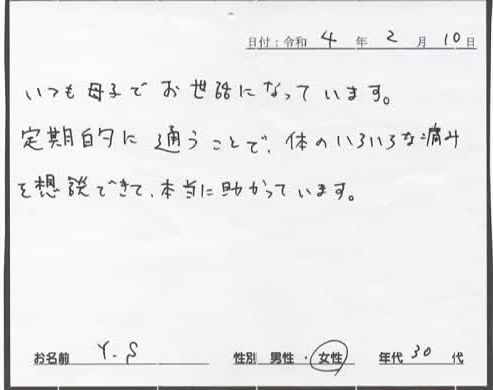 日付：令和 4 年 2 月 10 日
いつも母子でお世話になっています。
定期的に通うことで、体のいろいろな痛み
を想談できて、本当に助かっています。
お名前 Y.S 性別 男性・女性 年代 30 代